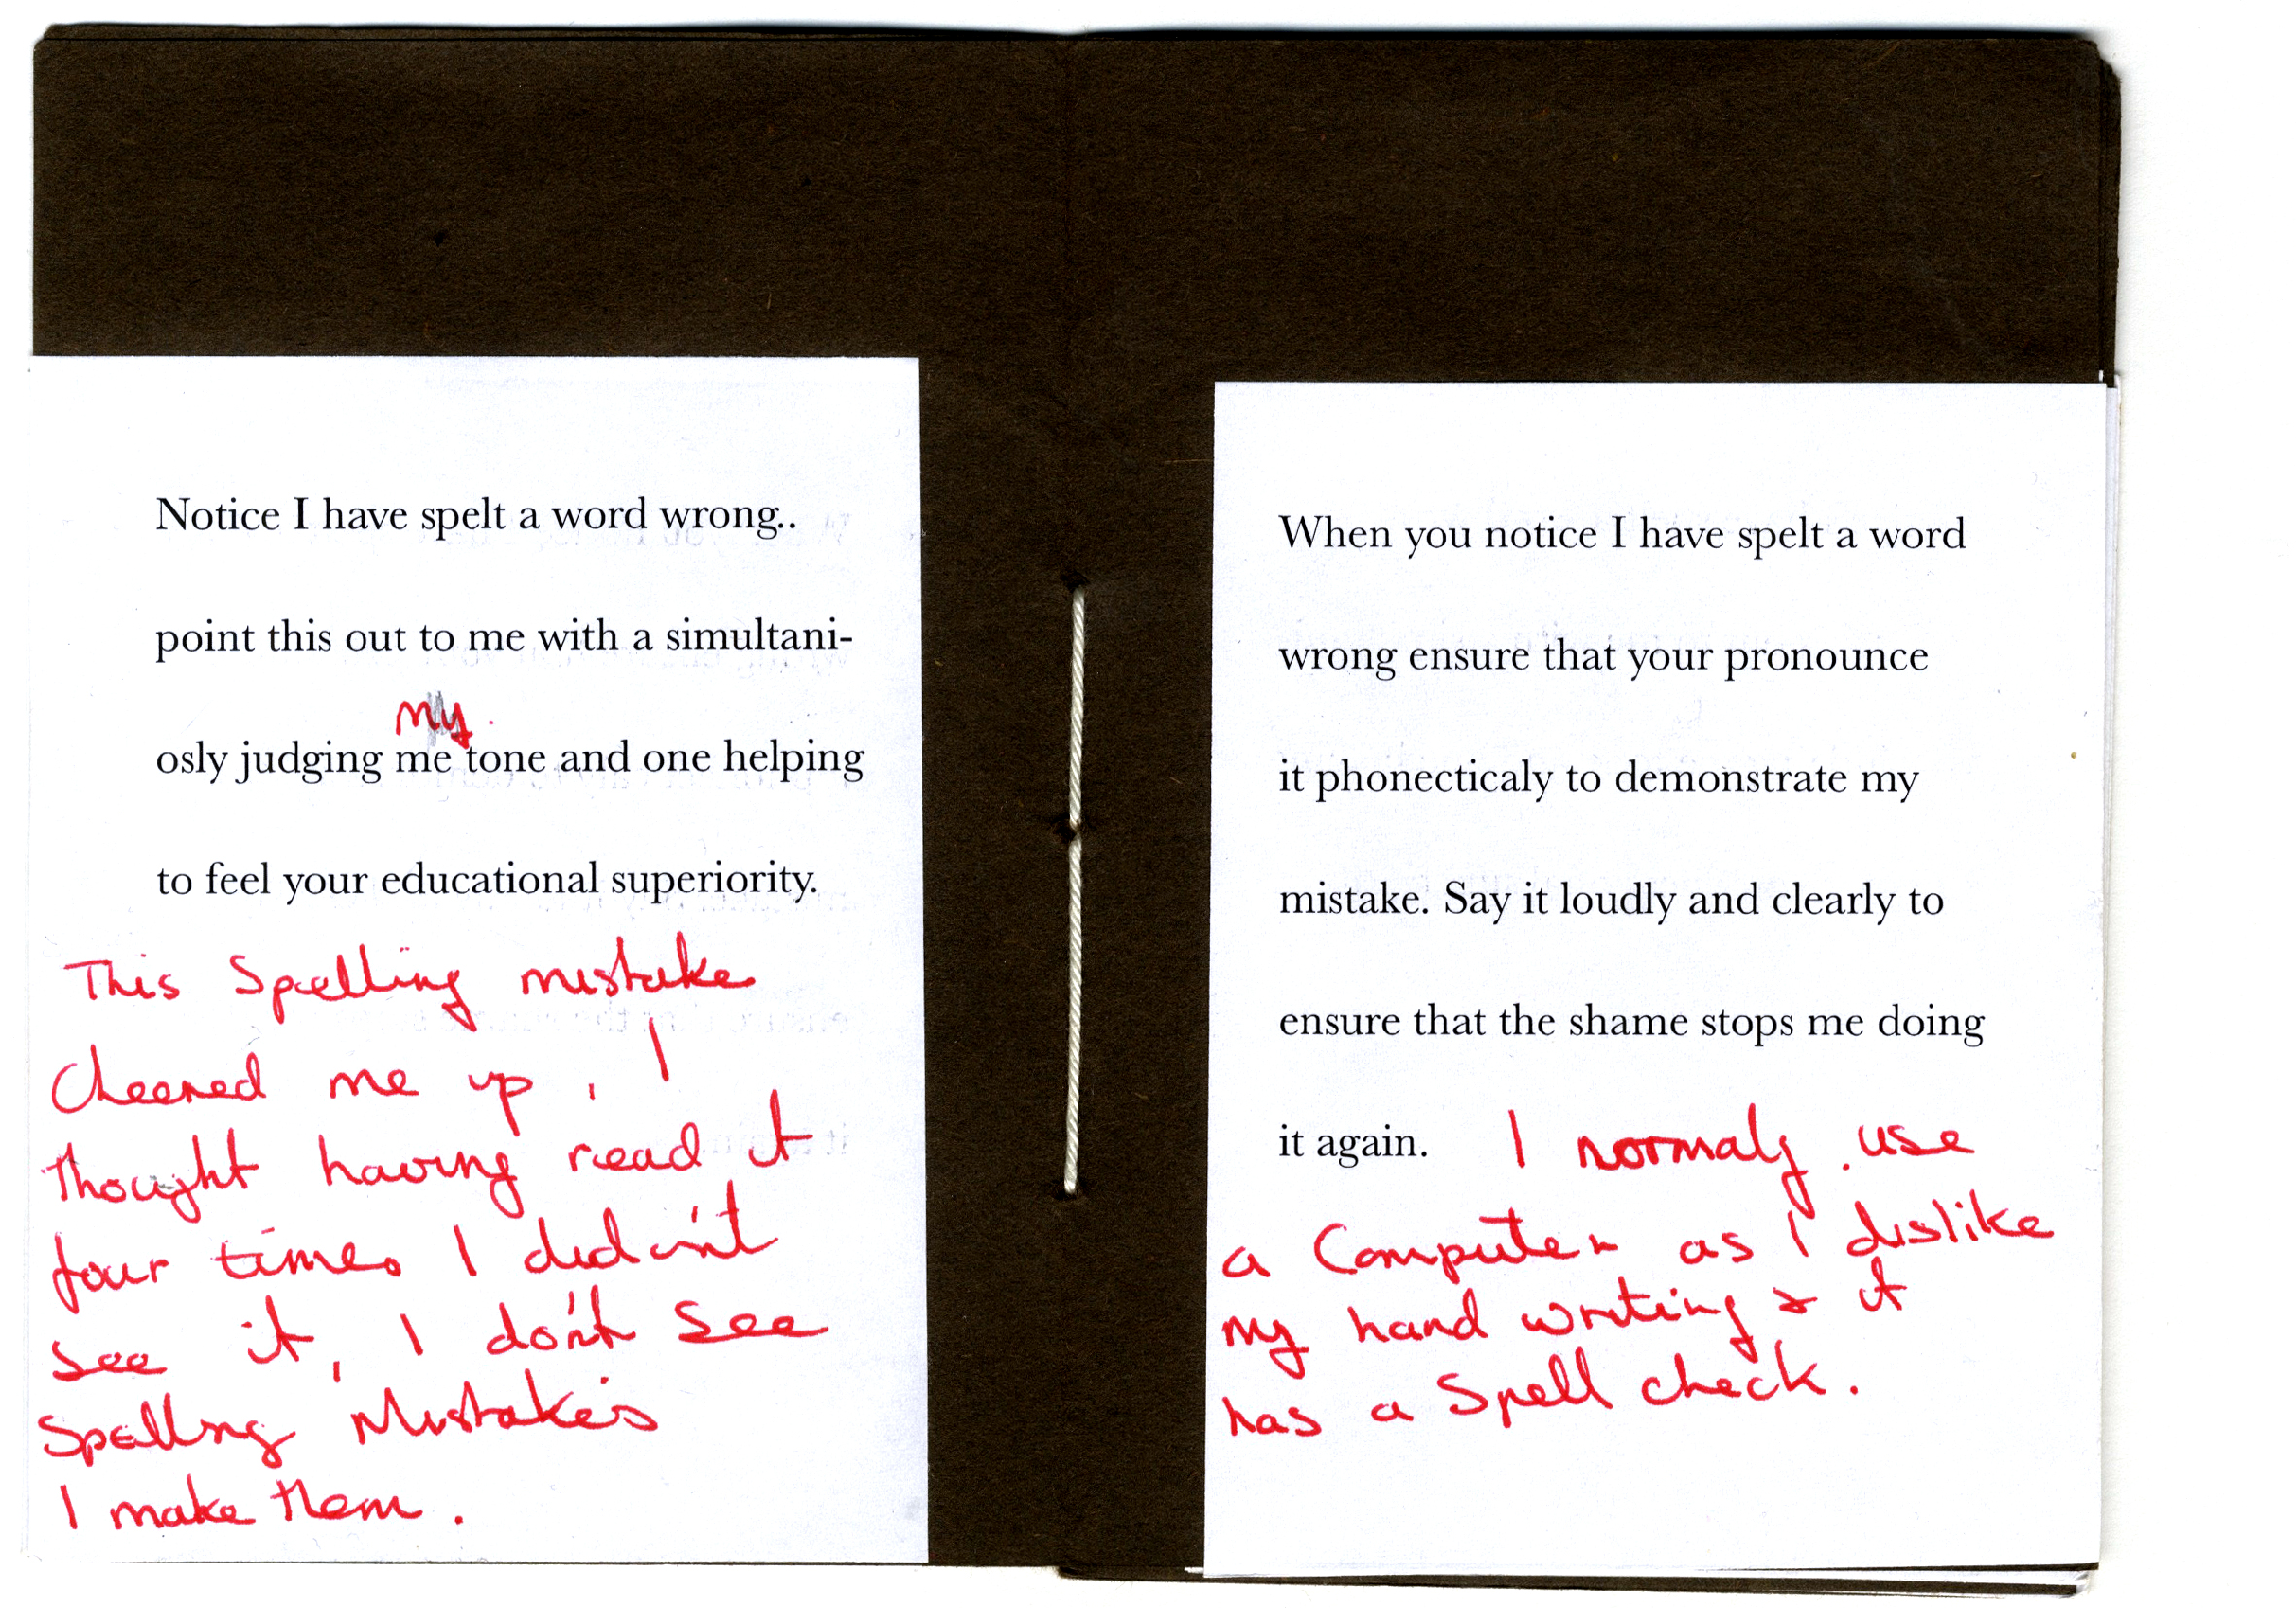 Notice I have spelt a word wrong..
point this out to me with a simultani-
my
osly judging me tone and one helping
to feel your educational superiority.
This Spelling mistake
Cheered me up, I
thought having read it
four times I didn't
see it, I don't see
Spelling Mistake's
I make them.
When you notice I have spelt a word
wrong ensure that your pronounce
it phonecticaly to demonstrate my
mistake. Say it loudly and clearly to
ensure that the shame stops me doing
it again. I normaly use
a Computer as I dislike
my hand writing & it
has a Spell check.